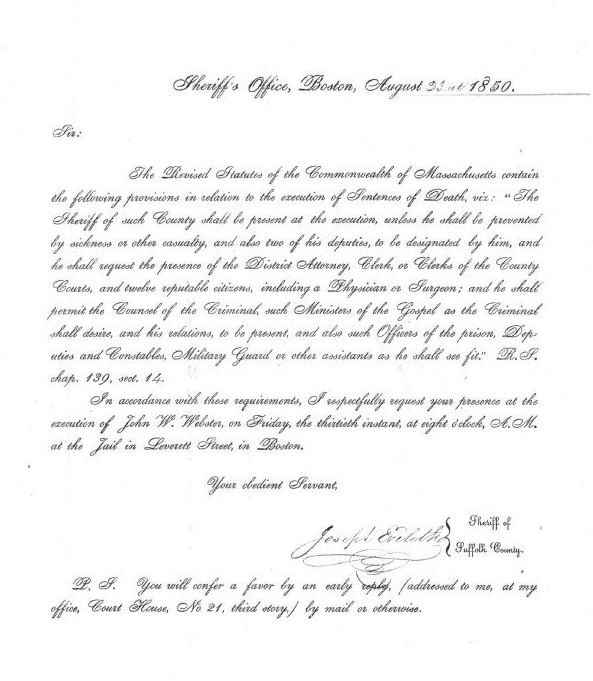 Sheriff's Office, Boston, August 1850.
Sir:
The Revised Statutes of the Commonwealth of Massachusetts contain
the following provisions in relation to the execution of Sentences of Death, viz: "The
Sheriff of such County shall be present at the execution, unless he shall be prevented
by sickness or other casualty, and also two of his deputies, to be designated by him, and
he shall request the presence of the District Attorney, Clerk, or Clerks of the County
Courts, and twelve reputable citizens, including a Physician or Surgeon; and he shall
permit the Counsel of the Criminal, such Ministers of the Gospel as the Criminal
shall desire, and his relations, to be present, and also such Officers of the prison, Dep-
uties and Constables, Military Guard or other assistants as he shall see fit." R. S.
chap. 139, sect. 14.
In accordance with these requirements, I respectfully request your presence at the
execution of John W. Webster, on Friday, the thirtieth instant, at eight o'clock, A.M.
at the Jail in Leverett Street, in Boston.
Your obedient Servant,
Joseph Eveleth
Sheriff of
Suffolk County.
P. S. You will confer a favor by an early reply, (addressed to me, at my
office, Court House, No 21, third story,) by mail or otherwise.